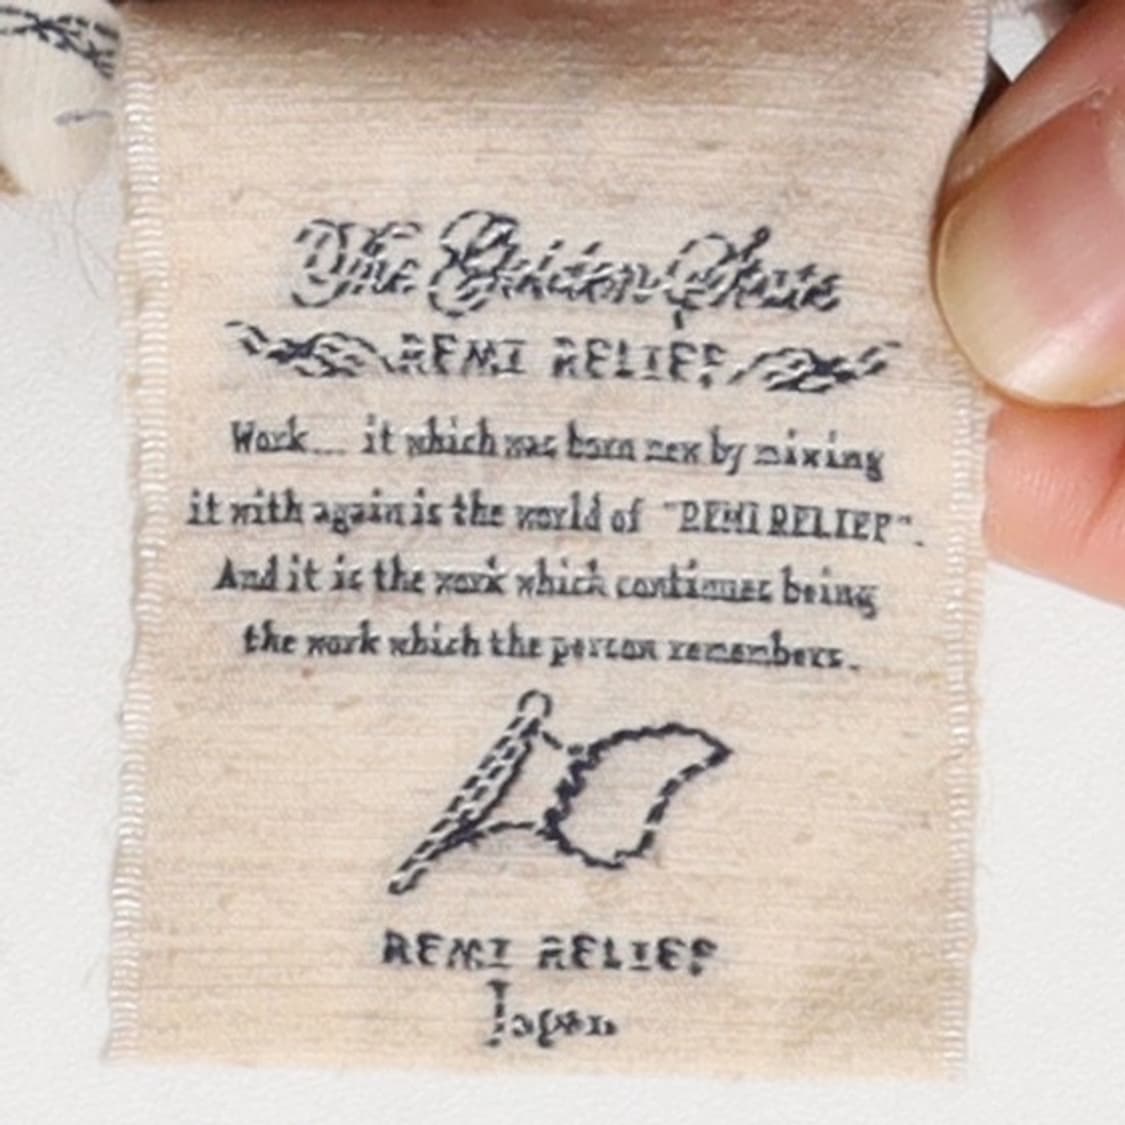 The Golden State
REMI RELIEF
Work... it which was born new by mixing
it with again is the world of "REMI RELIEF".
And it is the work which continues being
the work which the person remembers.
REMI RELIEF
Japan